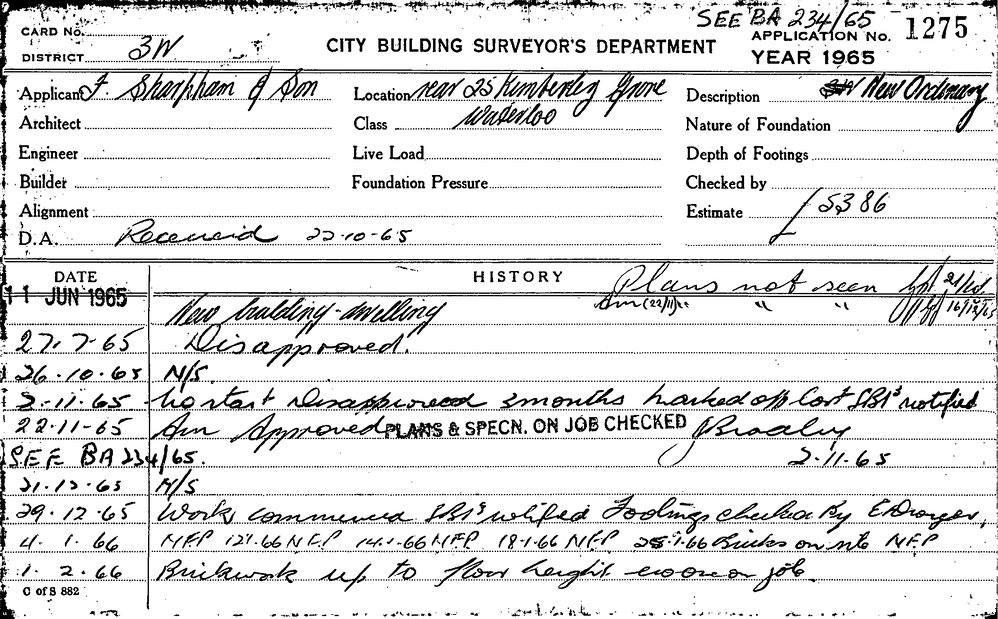 SEE BA 234/65
CARD No.
APPLICATION No. 1275
DISTRICT 3W
CITY BUILDING SURVEYOR'S DEPARTMENT
YEAR 1965
Applicant F. Sharpham & Son
Location rear 25 Kimberley Grove
Waterloo
Description New Ordinary
Architect
Class
Nature of Foundation
Engineer
Live Load
Depth of Footings
Builder
Foundation Pressure
Checked by
Alignment
Estimate £5386
D.A. Received 22-10-65
DATE
HISTORY
Plans not seen
11 JUN 1965
Am (22/11) " " "
New building-dwelling
27.7.65 Disapproved.
26.10.65 N/S.
2.11.65 no start Disapproved 3 months marked off Cost SBI's notified
22-11-65 Am Approved PLANS & SPECN. ON JOB CHECKED
SEE BA 234/65. 2-11-65
21.12.65 N/S
29.12.65 Work commenced SBI's notified Footings checked By
4.1.66 NFP 12.1.66 NFP 14.1.66 NFP 18.1.66 NFP 25.1.66 Bricks on site NFP
1.2.66 Brickwork up to floor height on job.
C of S 882